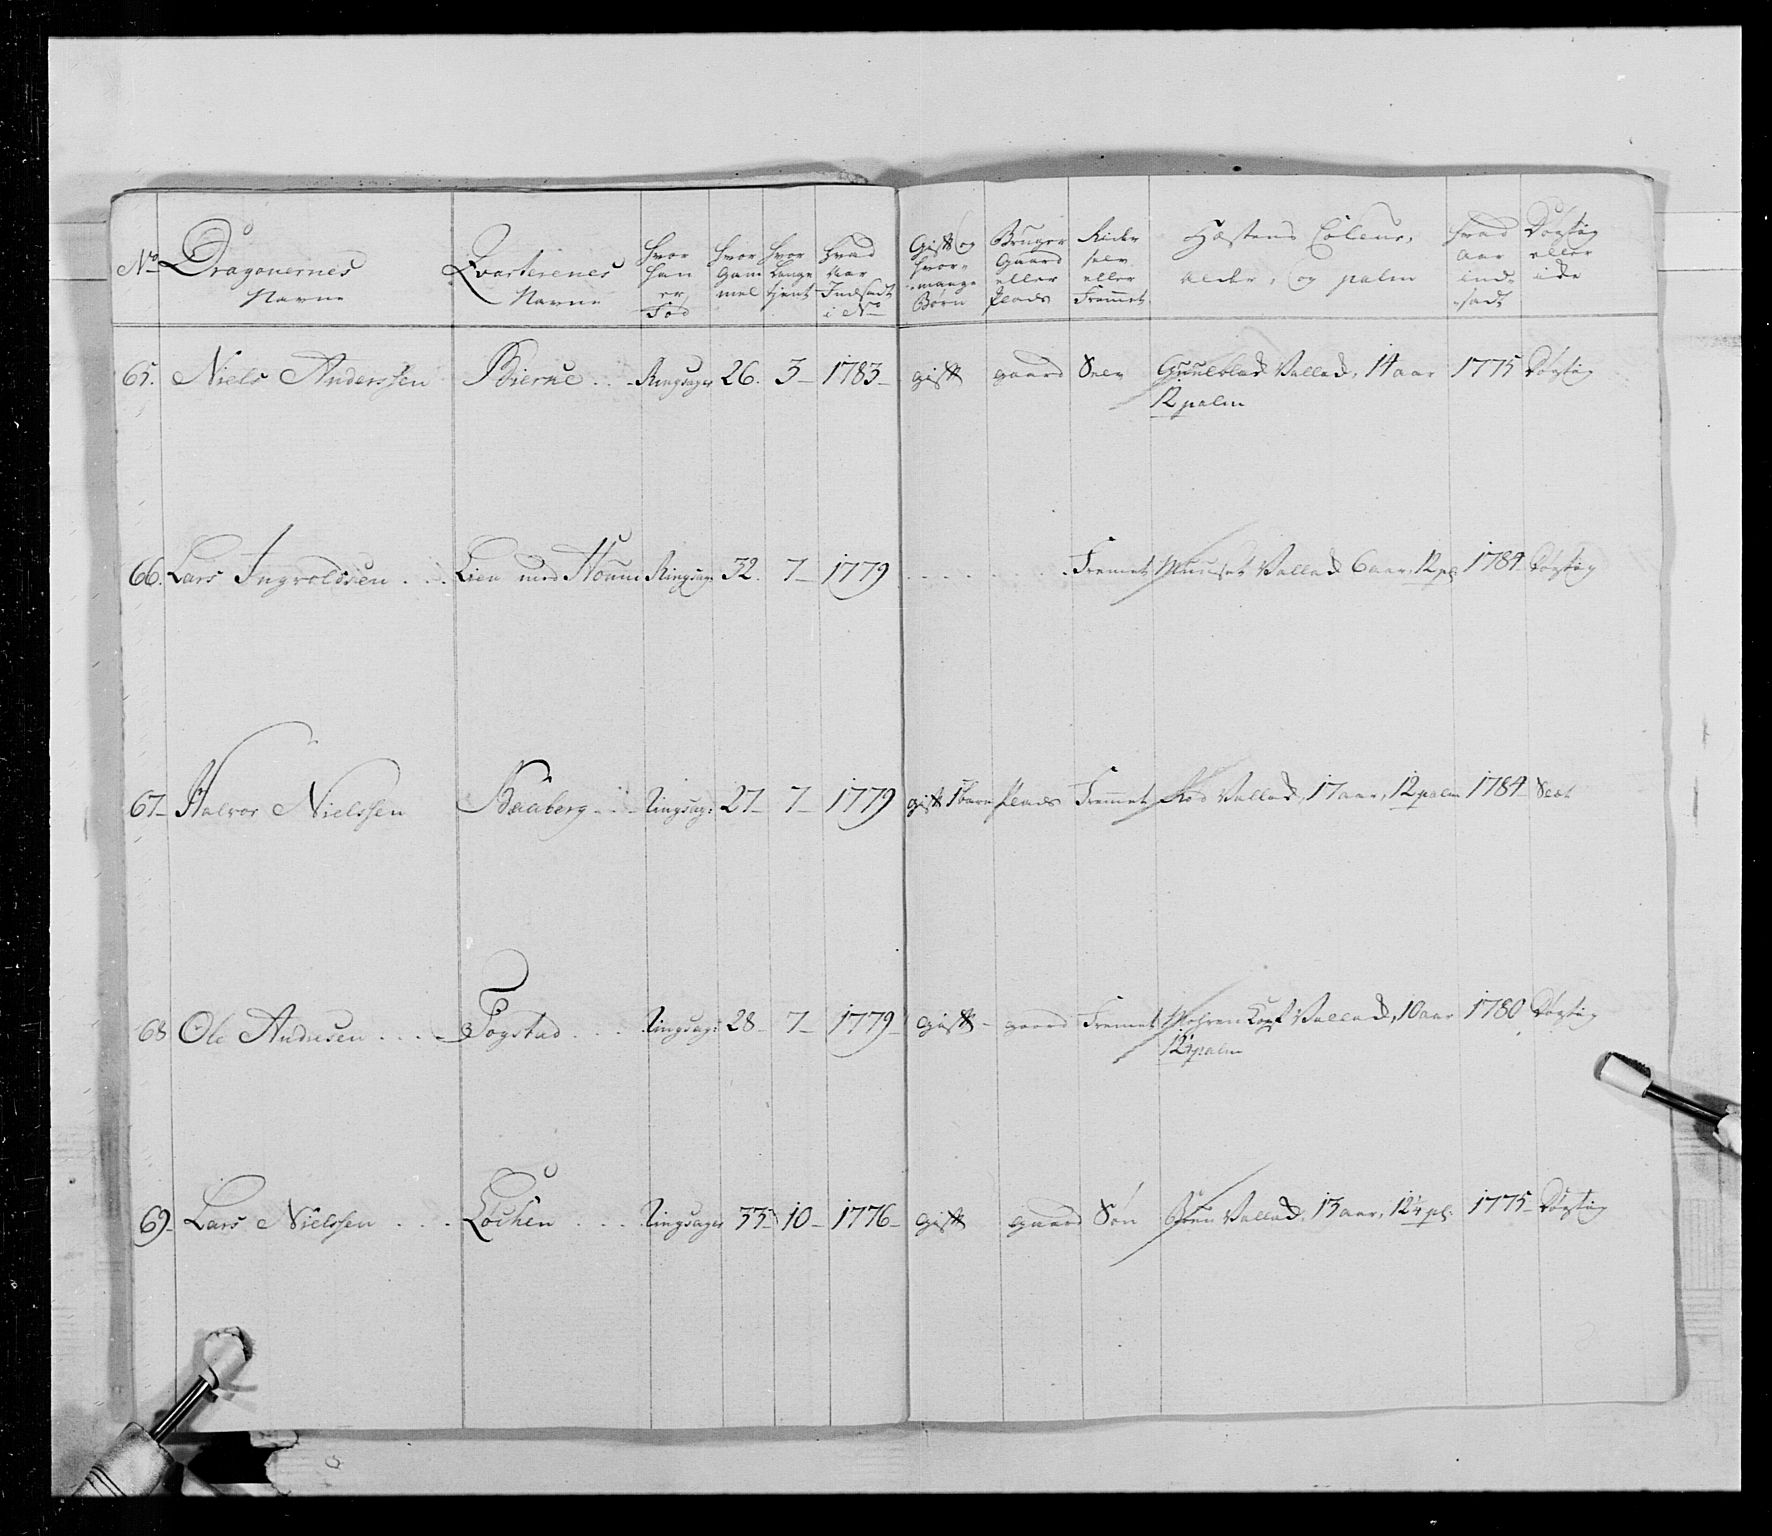 No
Dragonernes Navne
Qvarterenes Navne
Hvor han er Fød
Hvor Gam mel
Hvor Lange tjent
Hvad Aar Indsadt i No
Gift og hvor- mange Børn
Bruger Gaard eller Plads
Rider selv eller Fremmet
Hæstens Coleur, alder, og palm
Hvad aar ind- sadt
Døgtig eller ike
65. Niels Anderssen Bierke .. Ringsager 26. 3- 1783- gift gaard Selv Guulblak Vallack, 14 aar 1775 Døgtig
12 palm
66. Lars Ingvoldssen .... Lien med Houm Ringsag: 32. 7- 1779 Fremet Muuset Vallack 6 aar, 12 pl: 1784 Døgtig
67- Halvor Nielssen Baaberg ... Ringsag: 27- 7- 1779 gift 1 barn Plads Fremet Rød Vallack, 17 aar, 12 palm 1784- Slæt
68 Ole Andersen .... Togstad .. Ringsag: 28- 7- 1779- gift - gaard Fremet Mohren Kopf Vallack, 10 aar 1780 Døgtig
12¼ palm
69- Lars Nielssen ... Løchen ... Ringsager 33- 10- 1776- gift gaard Søn Brun Vallack, 13 aar, 12¼ pl: 1775- Døgtig